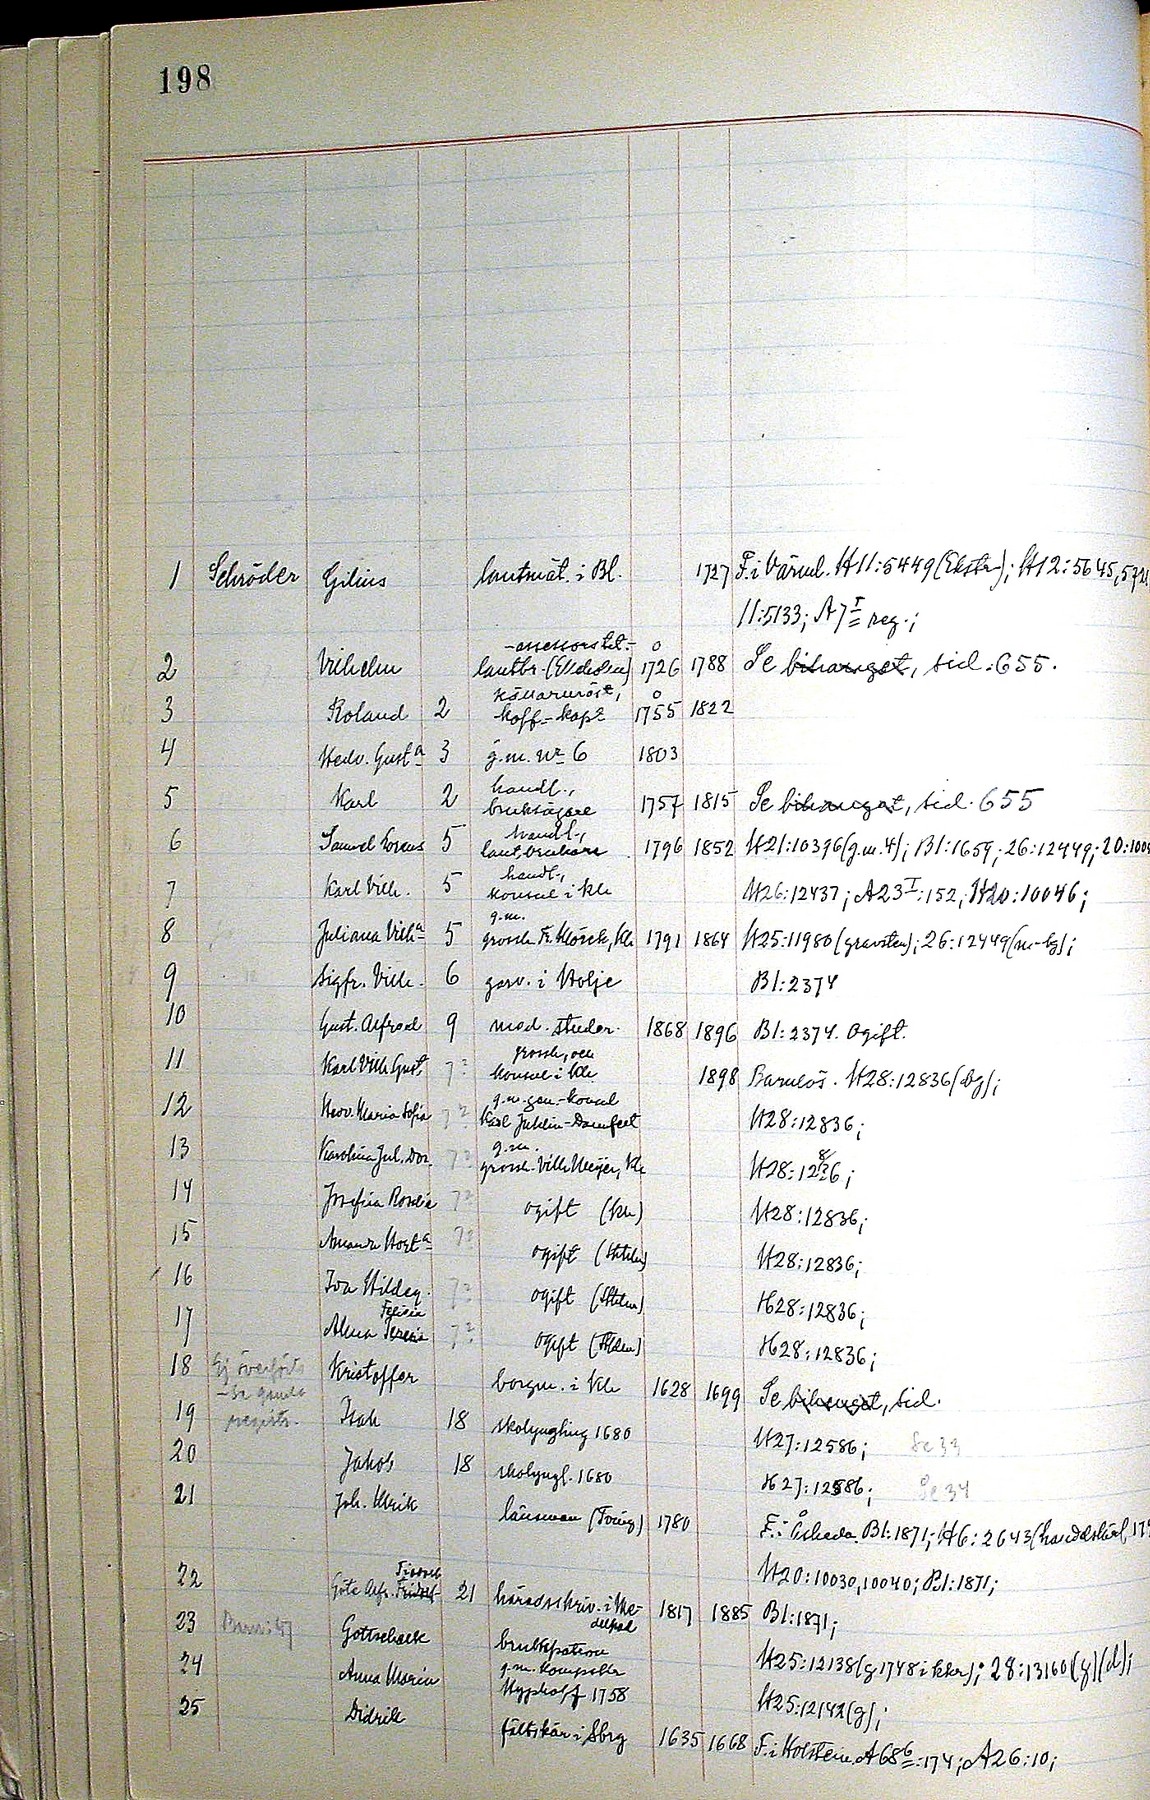 198
1 Schröder Gilius lantmät. i Bl. 1727 F. i Värml. H11:5449 (Ekstr); H12:5645,
11:5133; A7 I reg.;
2 Vilhelm lantbr. 1726 1788 Se bihanget, sid. 655.
källarmäst.,
3 Roland 2 koff.-kapt 1755 1822
4 Hedv. Gusta 3 g.m. nr 6 1803
handl.,
5 Karl 2 bruksägare 1757 1815 Se bihanget, sid. 655
handl.,
6 Samuel Lorens 5 lantbrukare 1796 1852 H21:10396 (g.m.4); Bl:1659; 26:12449;
handl.,
7 Karl Vilh. 5 konsul i Kh H26:12437; A23 I:152, H20:10046;
g.m.
8 Juliana Vilha 5 grossh. Fr. Mörck, Kh 1791 1864 H25:11980 (gravsten); 26:12449
9 Sigfr. Vilh. 6 garv. i Holje Bl:2374
10 Gust. Alfred 9 med. studer. 1868 1896 Bl:2374. Ogift.
grossh. och
11 Karl Vilh. Gust. 7? konsul i Kh 1898 Barnlös. H28:12836
g.m. gen-konsul
12 Hedv. Maria Sofia 7? Karl Juhlin-Dannfelt H28:12836;
g.m.
13 Karolina Jul. Dor. 7? grossh. Vilh Meijer, Kh H28:12836;
14 Josefina Rosalia 7? ogift (Kh) H28:12836;
15 Amanda Horta 7? ogift (Sthlm) H28:12836;
16 Ida Hildeg. 7? ogift (Sthlm) H28:12836;
Felicia
17 Alma 7? ogift (Sthlm) H28:12836;
18 Ej överförts Kristoffer borgm. i Kh 1628 1699 Se bihanget, sid.
-se gamla
19 registr. Isak 18 skolyngling 1680 H27:12586; Se 33
20 Jakob 18 skolyngl. 1680 H27:12586; Se 34
21 Joh. Ulrik länsman (Tving) 1780 F. i Åsheda. Bl:1871; H6:2643
H20:10030, 10040; Bl:1871;
22 Göte Alfr. 21 häradsskriv. i Me- 1817 1885 Bl:1871;
delpad
23 Gottschalk brukspatron H25:12138 (g 1748 i Khr); 28:13160 (g)(d);
24 Anna Maria g.m.
1758 H25:12142 (g);
25 Didrik fältskär i Sbrg 1635 1668 F. i Holstein. A68 6:174; A26:10;